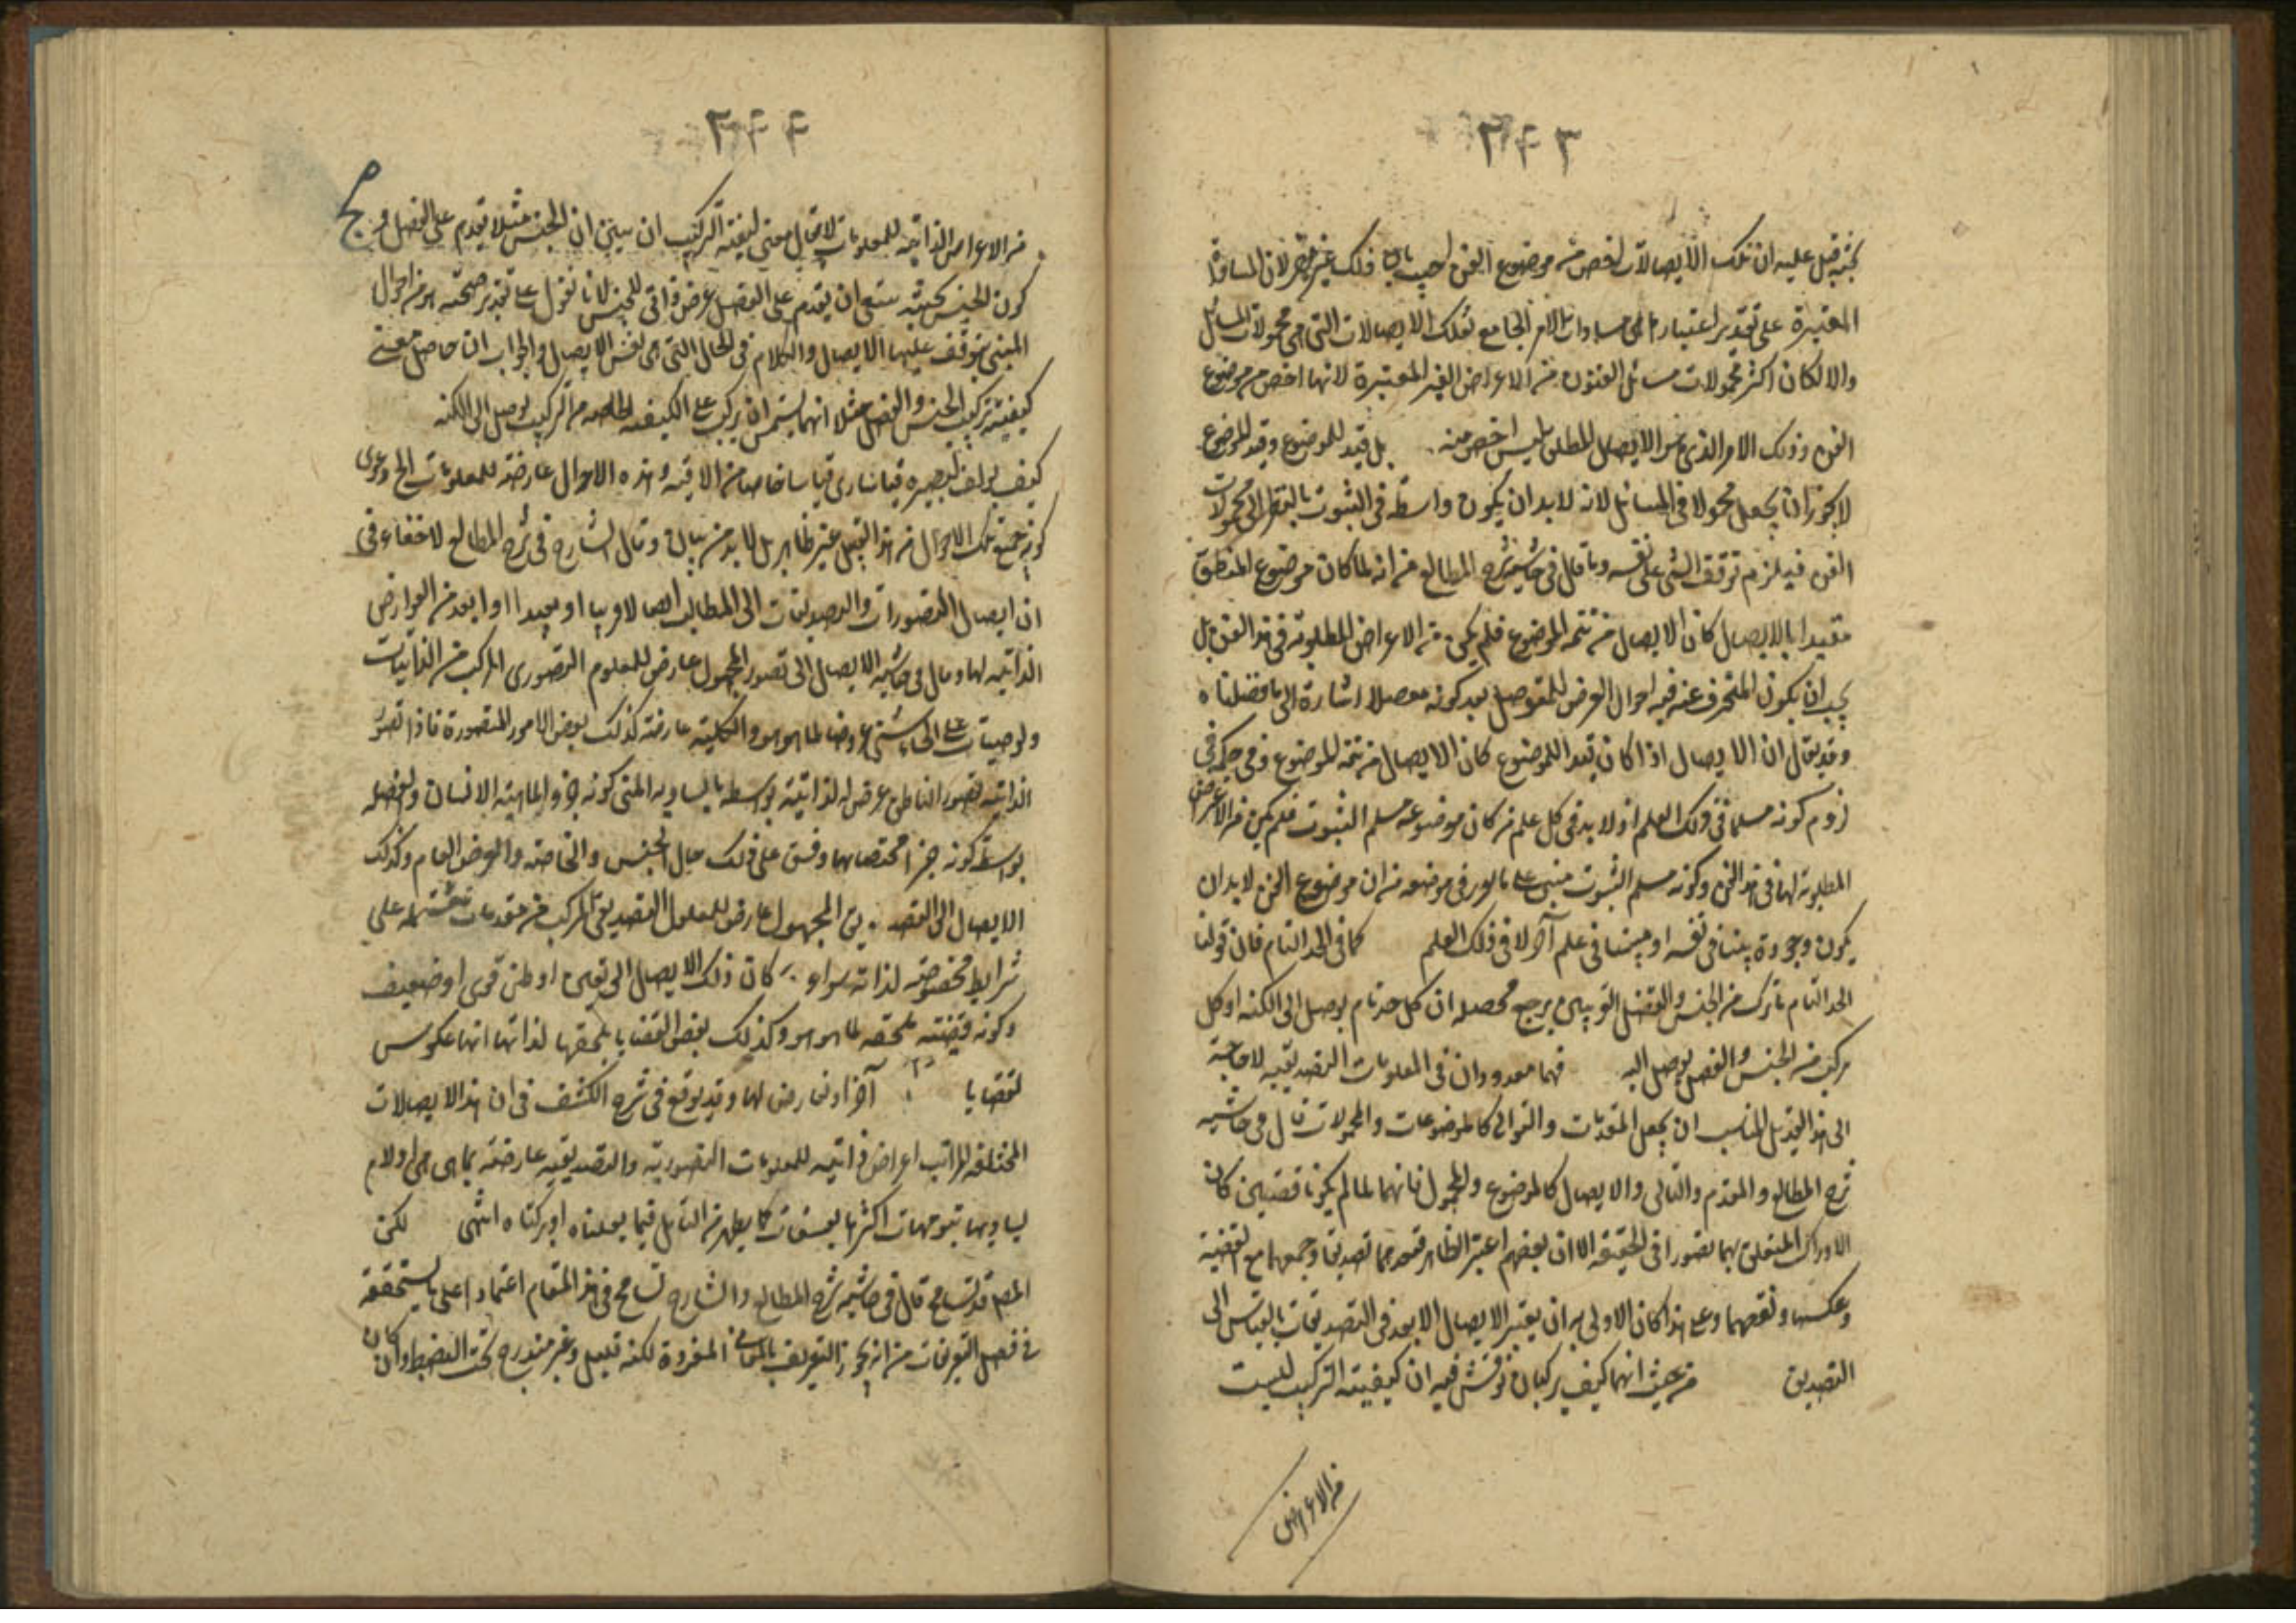 ٢٤٣
قيل عليه ان تلك الايصالات اخص من موضوع الفن اجيب بان ذلك غير مضر لان المساواة
المعتبرة على تقدير اعتبارها هي مساوات الامر الجامع لتلك الايصالات التي هي محمولات المسائل
والا لكان اكثر محمولات مسائل الفنون من الاعراض الغير المعتبرة لانها اخص من موضوع
الفن وذلك الامر الذي هو الايصال المطلق ليس اخص منه بل قيد للموضوع وقيد الموضوع
لا يجوز ان يجعل محمولا في المسائل لانه لا بد ان يكون واسطة في الثبوت بالنظر الى محمولات
الفن فيلزم توقف الشئ على نفسه وما قال في حاشية شرح المطالع من انه لما كان موضوع المنطق
مقيدا بالايصال كان الايصال من تتمة الموضوع فلم يكن من الاعراض المطلوبة في هذا الفن بل
يجب ان يكون المبحوث عنه فيه احوال العرض للموصل بعد كونه موصلا اشارة الى ما فصلناه
وقد يقال ان الايصال اذا كان قيدا للموضوع كان الايصال من تتمة الموضوع وفي حكمه في
لزوم كونه مسلما في ذلك العلم اذ لا بد في كل علم من كان موضوعه مسلم الثبوت فلم يكن من الاعراض
المطلوبة لها في هذا الفن وكونه مسلم الثبوت مبني على ما تقرر في موضعه من ان موضوع الفن لا بد ان
يكون وجوده بينا في نفسه او مبينا في علم آخر لا في ذلك العلم كما في الحد التام فان قولنا
الحد التام ما تركب من الجنس والفصل القريبين يرجع محصله ان كل حد تام يوصل الى الكنه او كل
مركب من الجنس والفصل يوصل اليه فهما معدودان في المعلومات التصديقية لا حاجة
الى هذا بل المناسب ان يجعل المقدمات والتوالي كالموضوعات والمحمولات قال في حاشية
شرح المطالع والمقدم والتالي والايصال كالموضوع والمحمول فانهما لما لم يكونا قضيتين كان
الادراك المتعلق بهما تصورا في الحقيقة الا ان بعضهم اعتبر الظاهر فعدهما تصديقا وجمعهما مع القضية
وعكسها ونقضها وعلى هذا كان الاولى به ان يعتبر الايصال الابعد في التصديقات بالقياس الى
التصديق من حيث انهما كيف يركبان نوقش فيه ان كيفية التركيب ليست
من الاعراض
٢٤٤
من الاعراض الذاتية للمعلومات لا يقال معنى كيفية التركيب ان يبين ان الجنس مثلا يقدم على الفصل و ح
كون الجنس بحيث ينبغي ان يقدم على الفصل عرض ذاتي للجنس لانا نقول على تقدير صحته هو من احوال
المبني يتوقف عليها الايصال والكلام في الحال التي هي نفس الايصال والجواب ان حاصل معنى
كيفية تركيب الجنس والفصل مثلا انهما بشرط ان يركب على الكيفية الخاصة من التركيب يوصل الى الكنه
كيف يؤلف ليصير قياسا اي قياسا خاصا من الاقيسة وهذه الاحوال عارضة للمعلومات الخ دعوى
كون جميع تلك الاحوال من هذا القبيل غير ظاهر بل لا بد من بيان وقال الشارح في شرح المطالع لا خفاء في
ان ايصال التصورات والتصديقات الى المطالب ايصالا قريبا او بعيدا او ابعد من العوارض
الذاتية لها وقال في حاشيته الايصال الى تصور المجهول عارض للمعلوم التصوري المركب من الذاتيات
لما هو هو والكلية عارضة كذلك لبعض الامور المتصورة فاذا تصور
الذاتية تصور الناطق عرض له لذاتية بواسطة ما يساويه اعني كونه جزء لماهية الانسان والفصلية
بواسطة كونه جزءا مختصا بها وقس على ذلك حال الجنس والخاصة والعرض العام وكذلك
الايصال الى التصديق المجهول عارض للمعلوم التصديقي المركب من مقدمات مشتملة على
شرايط مخصوصة لذاته سواء كان ذلك الايصال الى يقين او ظن قوي او ضعيف
وكونه قضية تلحقه لما هو هو وكذلك بعض القضايا يلحقها لذاتها انها عكوس
لقضايا آخر او نقايض لها وقد يوقع في شرح الكشف في ان هذه الايصالات
المختلفة المراتب اعراض ذاتية للمعلومات التصورية والتصديقية عارضة لما هي هي او لامر
يساويها بتوجهات اكثرها تعسفات كما يظهر من التامل فيما نقلناه او تركناه انتهى لكن
المص قد تسامح قال في حاشية شرح المطالع والشارح تسامح في هذا المقام اعتمادا على ما سيحققه
في فصل التعريفات من انه يجوز التعريف بالمعاني المفردة لكنه قليل وغير مندرج تحت الضبط وان كان